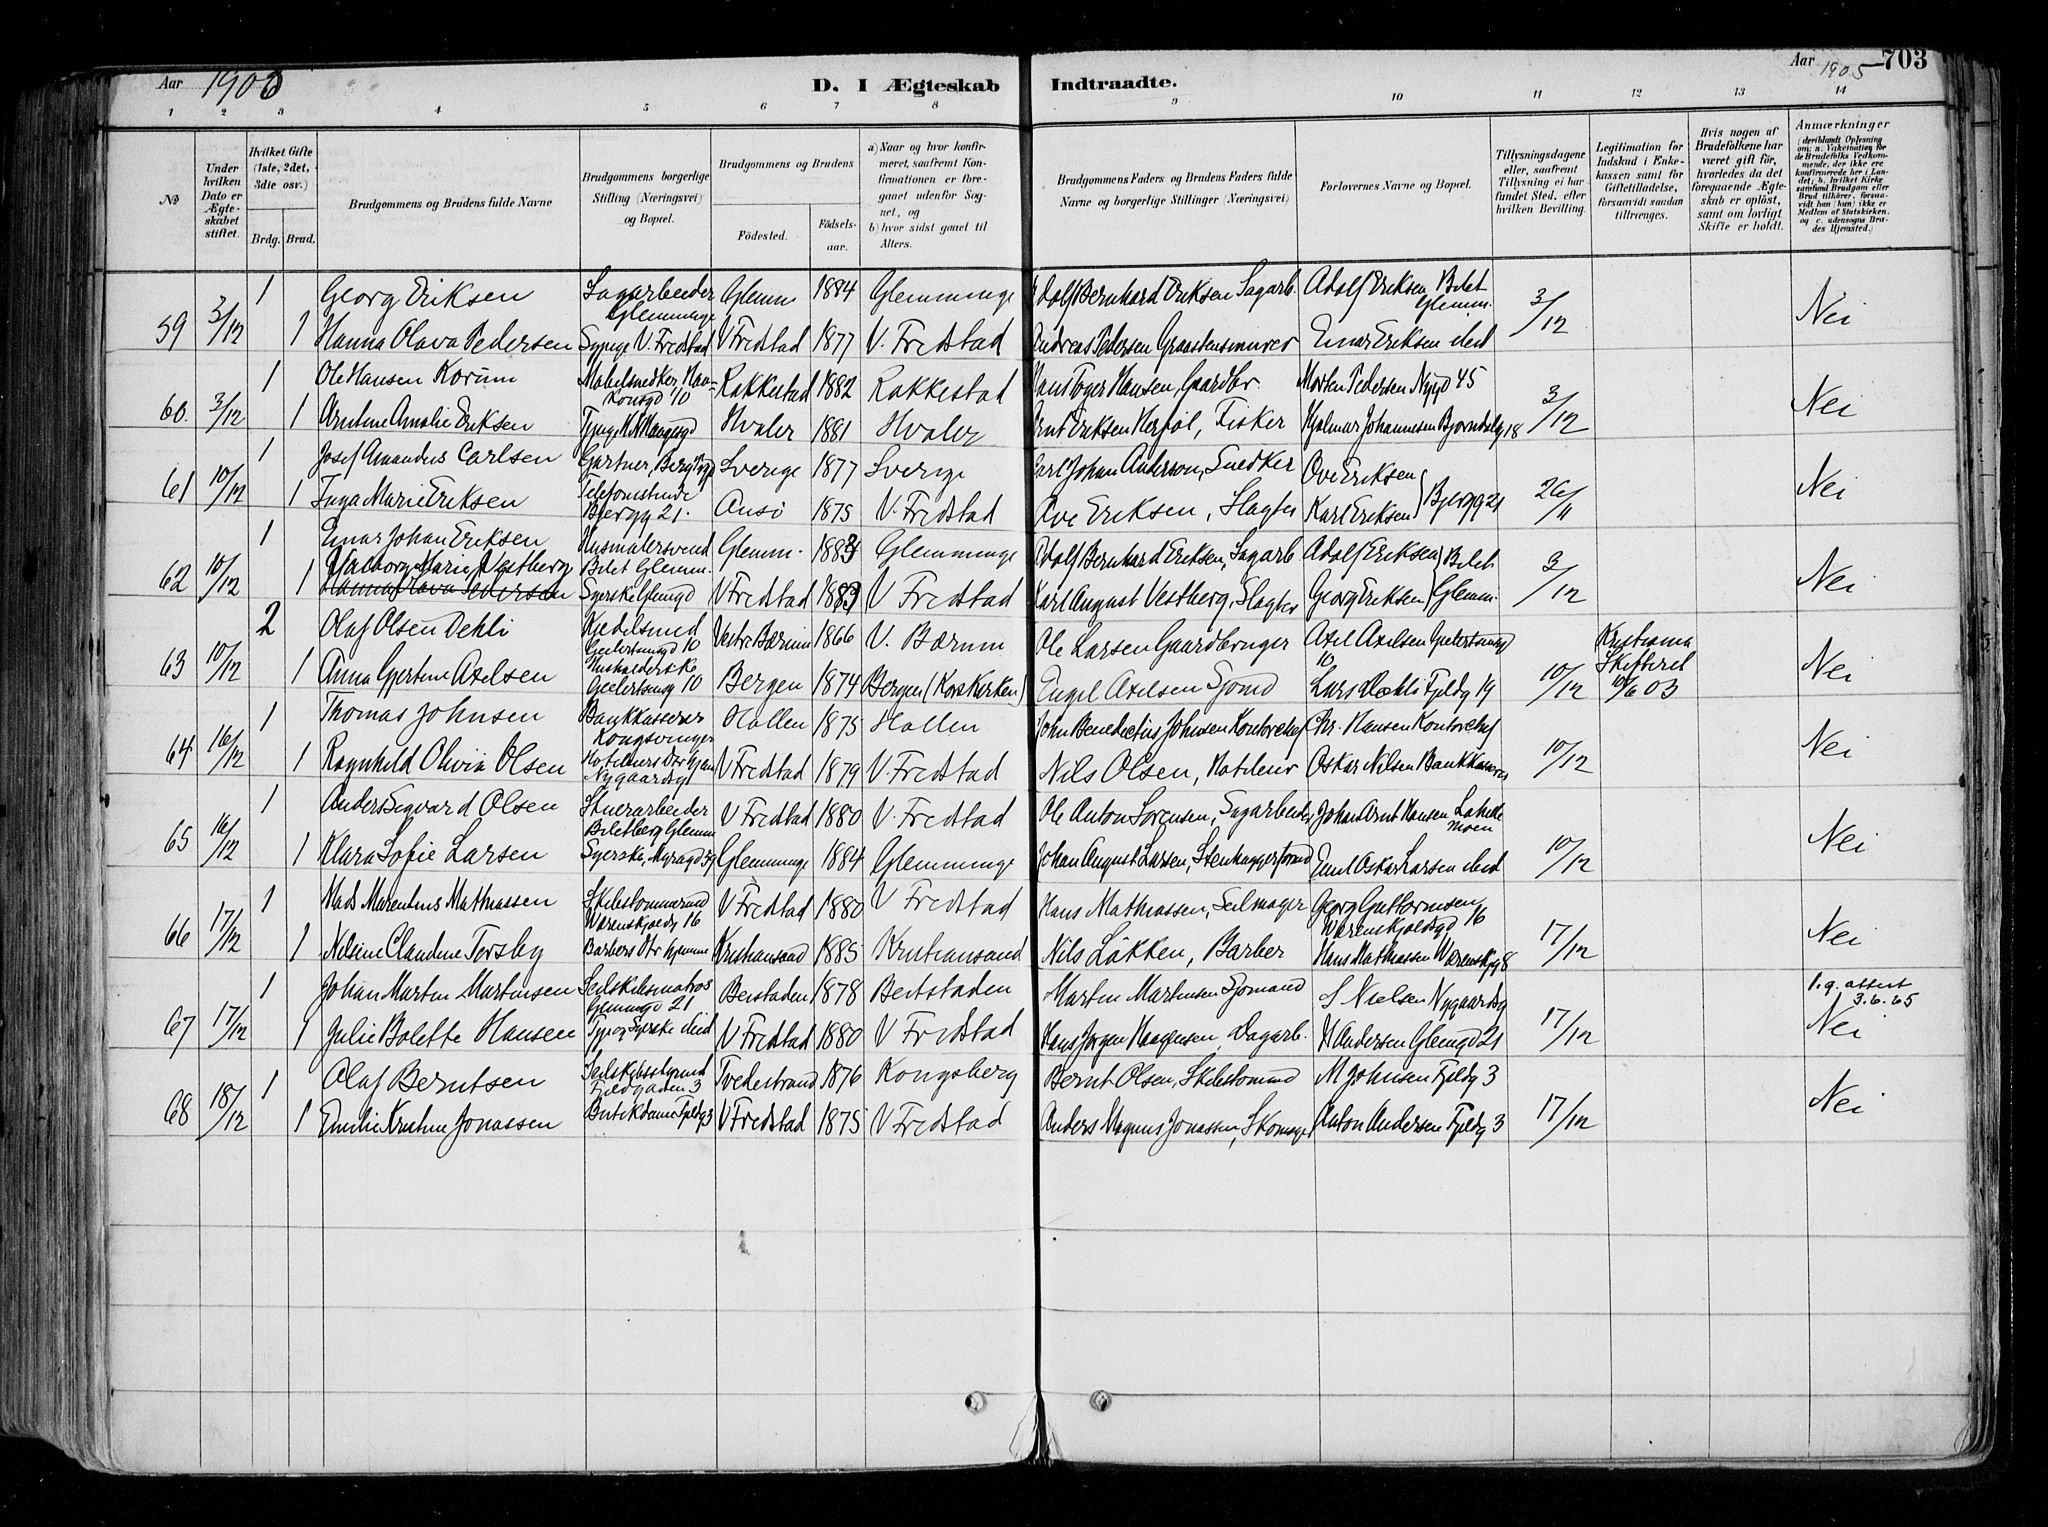 Aar 1905
D. I Ægteskab Indtraadte.
Aar 1905 703
1 2 3 4 5 6 7 8 9 10 11 12 13 14
No
Under hvilken Dato er Ægteskabet stiftet.
Hvilket Gifte (1ste, 2det, 3die osv.)
Brdg. Brud.
Brudgommens og Brudens fulde Navne
Brudgommens borgerlige Stilling (Næringsvei) og Bopæl.
Brudgommens og Brudens
Fødested. Fødselsaar.
a) Naar og hvor konfirmeret, saafremt Konfirmationen er foregaaet udenfor Sognet, og
b) hvor sidst gaaet til Alters.
Brudgommens Faders og Brudens Faders fulde Navne og borgerlige Stillinger (Næringsvei)
Forlovernes Navne og Bopæl.
Tillysningsdagene eller, saafremt Tillysning ei har fundet Sted, efter hvilken Bevilling.
Legitimation for Indskud i Enkekassen samt for Giftetilladelse, forsaavidt saadan tiltrænges.
Hvis nogen af Brudefolkene har været gift før, hvorledes da det foregaaende Ægteskab er opløst, samt om lovligt Skifte er holdt.
Anmærkninger
59 3/12 1 Georg Eriksen Sagarbeider Glemminge Glemm 1884 Glemminge Adolf Bernhard Eriksen Sagarb. Adolf Eriksen Bilet Glemm. 3/12 Nei
1 Hanna Olava Pedersen Sypige V. Fredstad V Fredstad 1877 V. Fredstad Andreas Pedersen Graastensmurer Einar Eriksen ibid
60. 3/12 1 Ole Hansen Korum Møbelsnedker, Haakonsgd 10 Rakkestad 1882 Rakkestad Hans Toger Hansen, Gaardbr. Morten Pedersen Nygd 45 3/12 Nei
1 Arntine Amalie Eriksen Hvaler 1881 Hvaler Arnt Eriksen Herføl, Fisker Hjalmar Johannesen Bjørndalsg 18
61 10/12 1 Josef Amandus Carlsen Gartner, Sverige 1877 Sverige Carl Johan Anderson, Snedker Ove Eriksen 26/11 Nei
1 Inga Marie Eriksen Bjergg 21. Onsø 1875 V. Fredstad Ove Eriksen, Slagter Karl Eriksen Bjergg 21
62 10/12 1 Einar Johan Eriksen Husmalersvend Bilet Glemm. Glemm. 1883 Glemminge Adolf Bernhard Eriksen, Sagarb. Adolf Eriksen Bilet 3/12 Nei
1 Valborg Marie Vestberg Hanna Olava Pedersen Syerske Glemgd V Fredstad 1883 V Fredstad Karl August Vestberg, Slagter Georg Eriksen Glemm.
63 10/12 2 Olaf Olsen Dehli Kjedelsmed Geelertsensgd 10 Vestre Bærum 1866 V. Bærum Ole Larsen Gaardbruger Axel Axelsen 10 10/12 Kristiania Skifteret 10/6 03 Nei
1 Anna Gjertine Axelsen Bergen 1874 Bergen (Korskirken) Engel Axelsen Sjømd Lars Dæhli Fjeldg 19
64 16/12 1 Thomas Johnsen Bankkasserer Kongsvinger Hollen 1875 Hollen John Benedictus Johnsen Kontorchef Chr. Hansen Kontorchef 10/12 Nei
1 Ragnhild Olivia Olsen V Fredstad 1879 V. Fredstad Nils Olsen, Hoteleier Oskar Nilsen
65 16/12 1 Anders Sigvard Olsen Stuerarbeider Biletberg Glemm V Fredstad 1880 V. Fredstad Ole Anton Sørensen, Sagarbeider Johan Arnt Hansen Lakkemoen 10/12 Nei
1 Klara Sofie Larsen Syerske, Glemminge 1884 Glemminge Johan August Larsen, Stenhuggerformd Emil Oskar Larsen ibid
66 17/12 1 Mads Marentius Mathiassen Skibstømmermd Warenskjoldsg 16 V Fredstad 1880 V Fredstad Hans Mathiassen, Seilmager Georg Guttormsen Warenskjoldsgd 16 17/12 Nei
1 Nelsine Claudine Torsby Barbers Dtr hjemme Kristiansand 1885 Kristiansand Nils Løkken, Barber Hans Mathiassen Warenskjg 8
67 17/12 1 Johan Martin Martinsen Seilskibsmatros Glemmgd 21 Beistaden 1878 Beitstaden Martin Martinsen Sjømand S Nielsen Nygaardsg 17/12 1.g. attest 3.6.65 Nei
1 Julie Bolette Hansen V Fredstad 1880 V Fredstad Hans Jørgen Haagensen, Dagarb. H Andersen Glemgd 21
68 18/12 1 Olaf Berntsen Seilskibsstyrmd Fjeldgaden 3 Tvedestrand 1876 Kongsberg Bernt Olsen, Skibstømmd M Johnsen Fjeldg 3 17/12 Nei
1 Emilie Kristine Jonassen Butikdame Fjeldg 3 V Fredstad 1875 V Fredstad Anders Magnus Jonassen, Skomager Anton Andersen Fjeldg 3